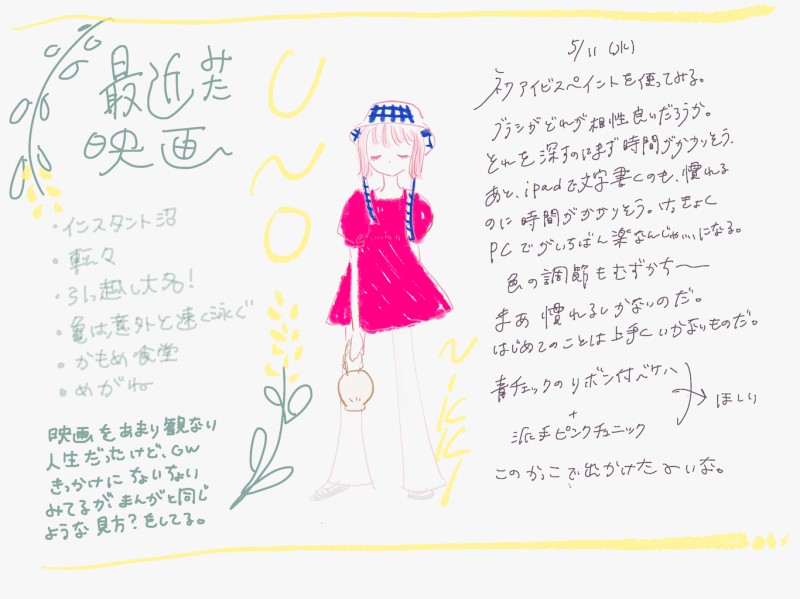 最近みた
映画
・インスタント沼
・転々
・引っ越し大名!
・亀は意外と速く泳ぐ
・かもめ食堂
・めがね
映画をあまり観ない
人生だったけど、GW
きっかけにちょいちょい
みてるが、まんがと同じ
ような見方?をしてる。
UNO
NIKKI
5/11(水)
初アイビスペイントを使ってみる。
ブラシがどれが相性良いだろうか。
それを探すのにまず時間がかかりそう。
あと、ipadで文字書くのも、慣れる
のに時間がかかりそう。けっきょく
PCでがいちばん楽なんじゃ…になる。
色の調節もむずかち〜
まあ慣れるしかないのだ。
はじめてのことは上手くいかないものだ。
青チェックのリボン付バケハ
+
派手ピンクチュニック
ほしい
このかっこで出かけたよいな。